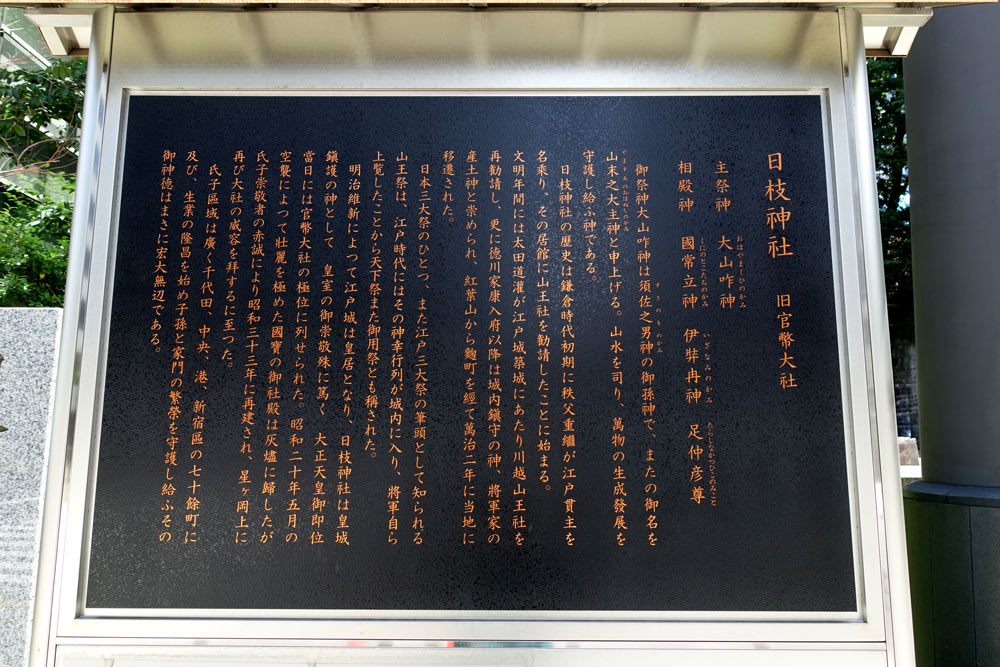 日枝神社　旧官幣大社
主祭神　大山咋神
おほやまくひのかみ
相殿神　國常立神　伊弉冉神　足仲彦尊
くにのとこたちのかみ　いざなみのかみ　たらしなかつひこのみこと
御祭神大山咋神は須佐之男神の御孫神で、またの御名を
すさのをのかみ
山末之大主神と申上げる。山水を司り、萬物の生成發展を
やますゑのおほぬしのかみ
守護し給ふ神である。
日枝神社の歴史は鎌倉時代初期に秩父重繼が江戸貫主を
名乗り、その居館に山王社を勧請したことに始まる。
文明年間には太田道灌が江戸城築城にあたり川越山王社を
再勧請し、更に徳川家康入府以降は城内鎮守の神、將軍家の
産土神と崇められ、紅葉山から麴町を經て萬治二年に当地に
移遷された。
日本三大祭のひとつ、また江戸三大祭の筆頭として知られる
山王祭は、江戸時代にはその神幸行列が城内に入り、將軍自ら
上覧したことから天下祭また御用祭とも稱された。
明治維新によつて江戸城は皇居となり、日枝神社は皇城
鎭護の神として　皇室の御崇敬殊に篤く　大正天皇御即位
當日には官幣大社の極位に列せられた。昭和二十年五月の
空襲によつて壮麗を極めた國寶の御社殿は灰燼に歸したが
氏子崇敬者の赤誠により昭和三十三年に再建され、星ヶ岡上に
再び大社の威容を拜するに至つた。
氏子區域は廣く千代田、中央、港、新宿區の七十餘町に
及び、生業の隆昌を始め子孫と家門の繁榮を守護し給ふその
御神徳はまさに宏大無辺である。